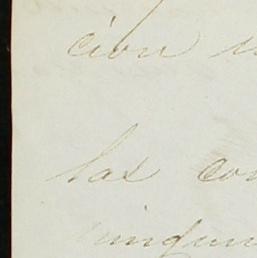 cion
las con
ningun